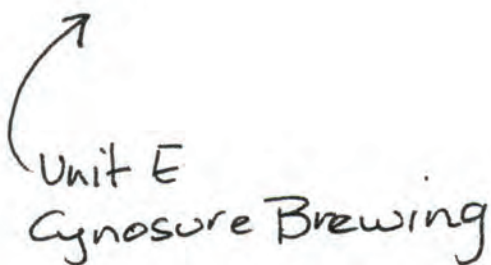 Unit E
Cynosure Brewing